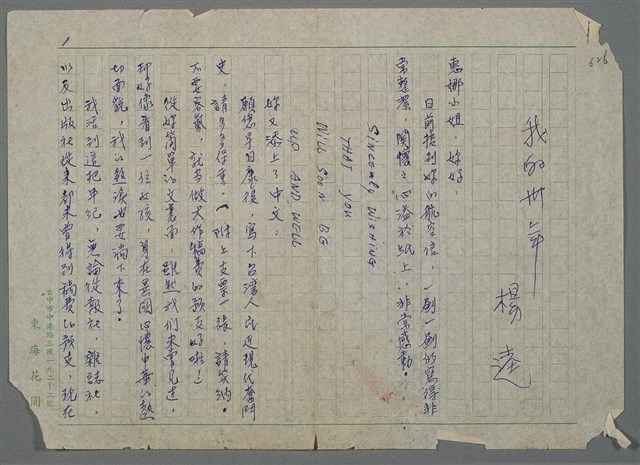 626
我的卅年
楊逵
惠娜小姐,妳好,
日前接到妳的航空信,一劃一劃的寫得非
常整潔,關懷之心溢於紙上,非常感動。
SINCERELY WISHING
THAT YOU
WILL SOON BE
UP AND WELL
妳又添上了中文:
願您早日康復,寫下台灣人民近現代奮鬥
史,請多多保重。附上支票一張,請笑納。
不要客氣,就当做大作稿費的預支好啦!
從妳简單的文意面,雖然我们未曾見過,
却好像看到一位女孩,身在異國心懷中華的熱
切面貌,我的熱淚也要淌下來了。
我活到這把年紀,無論從報社,雜誌社,
以及出版社從來都未曾得到稿費的預支,現在
1
台中市中港路三段一九二—二號
東海花園